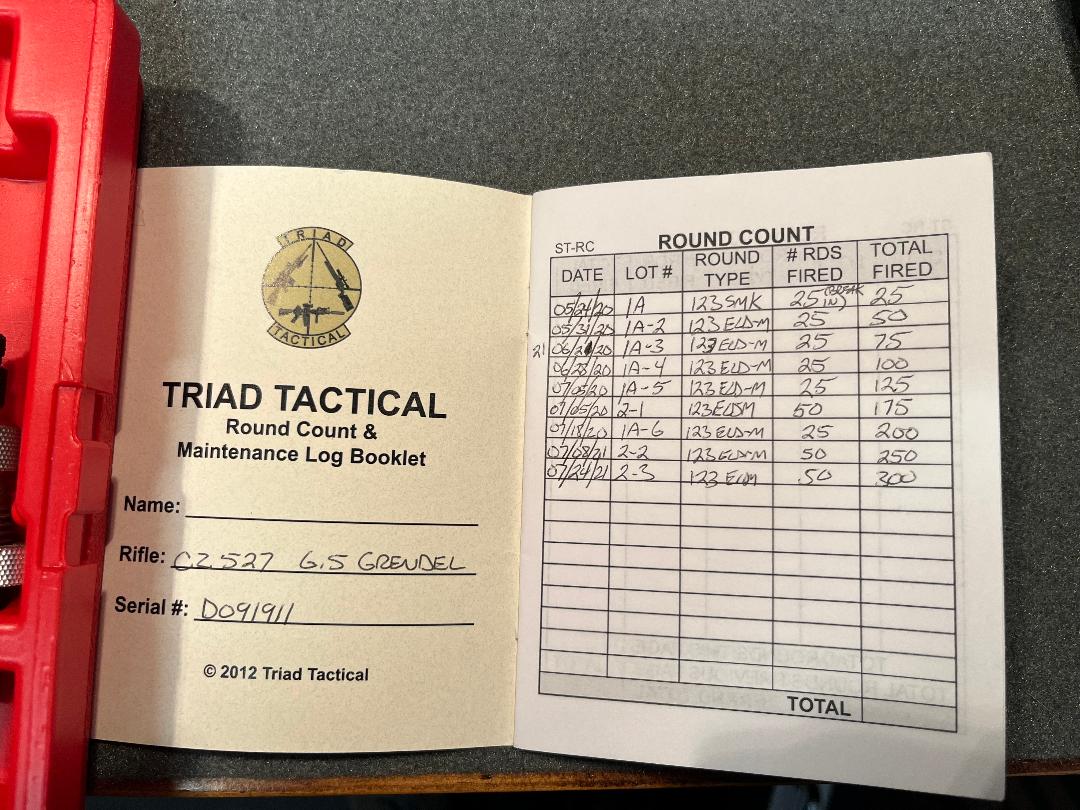 TRIAD
TACTICAL
TRIAD TACTICAL
Round Count &
Maintenance Log Booklet
Name:
Rifle: CZ 527 6.5 GRENDEL
Serial #: D091911
© 2012 Triad Tactical
ST-RC ROUND COUNT
DATE LOT # ROUND TYPE # RDS FIRED TOTAL FIRED
05/24/20 1A 123 SMK 25 (BREAK IN) 25
05/31/20 1A-2 123 ELD-M 25 50
21 06/21/20 1A-3 123 ELD-M 25 75
06/28/20 1A-4 123 ELD-M 25 100
07/05/20 1A-5 123 ELD-M 25 125
07/05/20 2-1 123 ELDM 50 175
07/18/20 1A-6 123 ELD-M 25 200
07/08/21 2-2 123 ELD-M 50 250
07/24/21 2-3 123 50 300
TOTAL